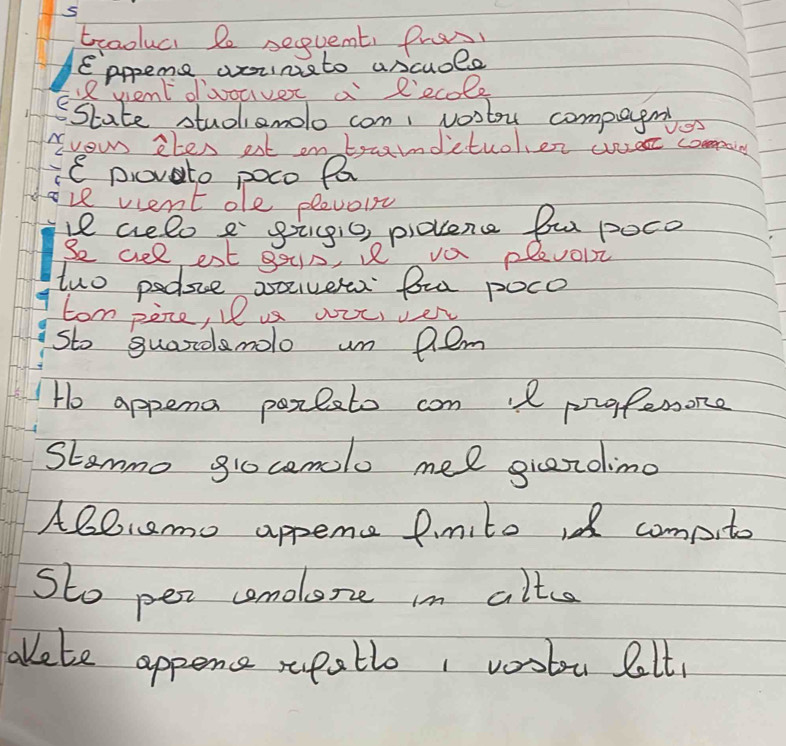 s
traduci le seguenti frasi
È appena arrivato a scuola
il vient d'arriver à l'ecole
State studiando con i vostri compagni
vous êtes est en train d'etudier avec vos
È piovuto poco fa
il vient de plevoir
il cielo è grigio, pioverà fra poco
Se ciel est gris, il va plevoir
tuo padre arriverà fra poco
ton père, il va arriver
Sto guardando un film
Ho appena parlato con il professore
Stanno giocando nel giardino
Abbiamo appena finito il compito
Sto per andare in città
avete appena rifatto i vostri letti